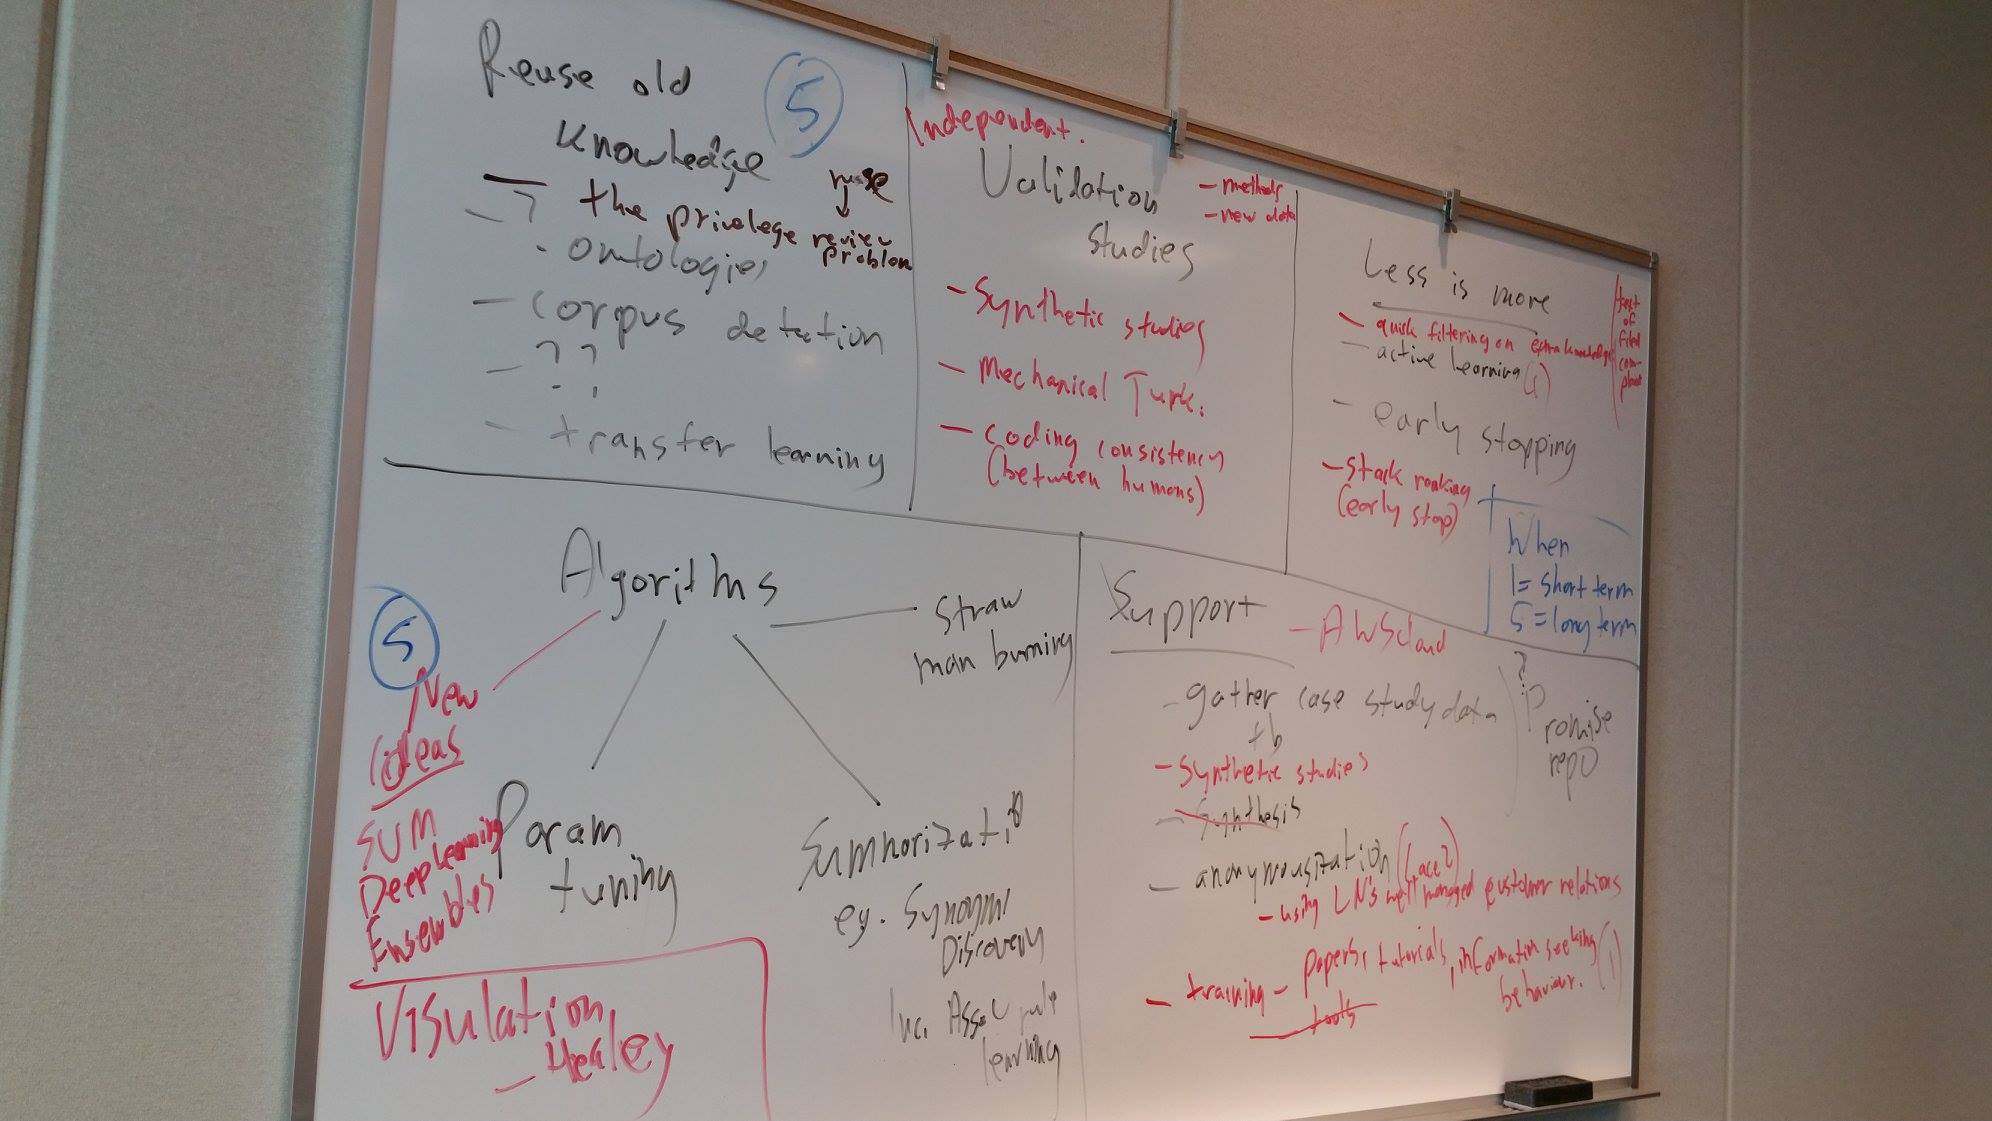 Reuse old
5
Knowledge
reuse
- the privelege review
problem
- ?
. ontologies
- corpus detection
- ??
- transfer learning
Independent.
Validation
studies
- methods
- new data
- Synthetic studies
- Mechanical Turk.
- coding consistency
(between humans)
Less is more
- quick filtering on extra knowledge
- active learning (1)
- early stopping
- stack ranking
(early stop)
text
of
filed
com-
plaint
When
1= short term
5= long term
Algorithms
5
New
ideas
SVM
Deep learning
Ensembles
Param
tuning
Summorization
eg. Synonym
Discovery
Inc. Assoc rule
learning
straw
man burning
Visulation
- Healey
Support
- AWS cloud
- gather case study data
tb
- Synthetic studies
- Synthesis
- anonymousization (Lace2)
- using LN's well managed customer relations
- training - papers, tutorials, information seeking
behaviour. (1)
tools
?
Promise
repo